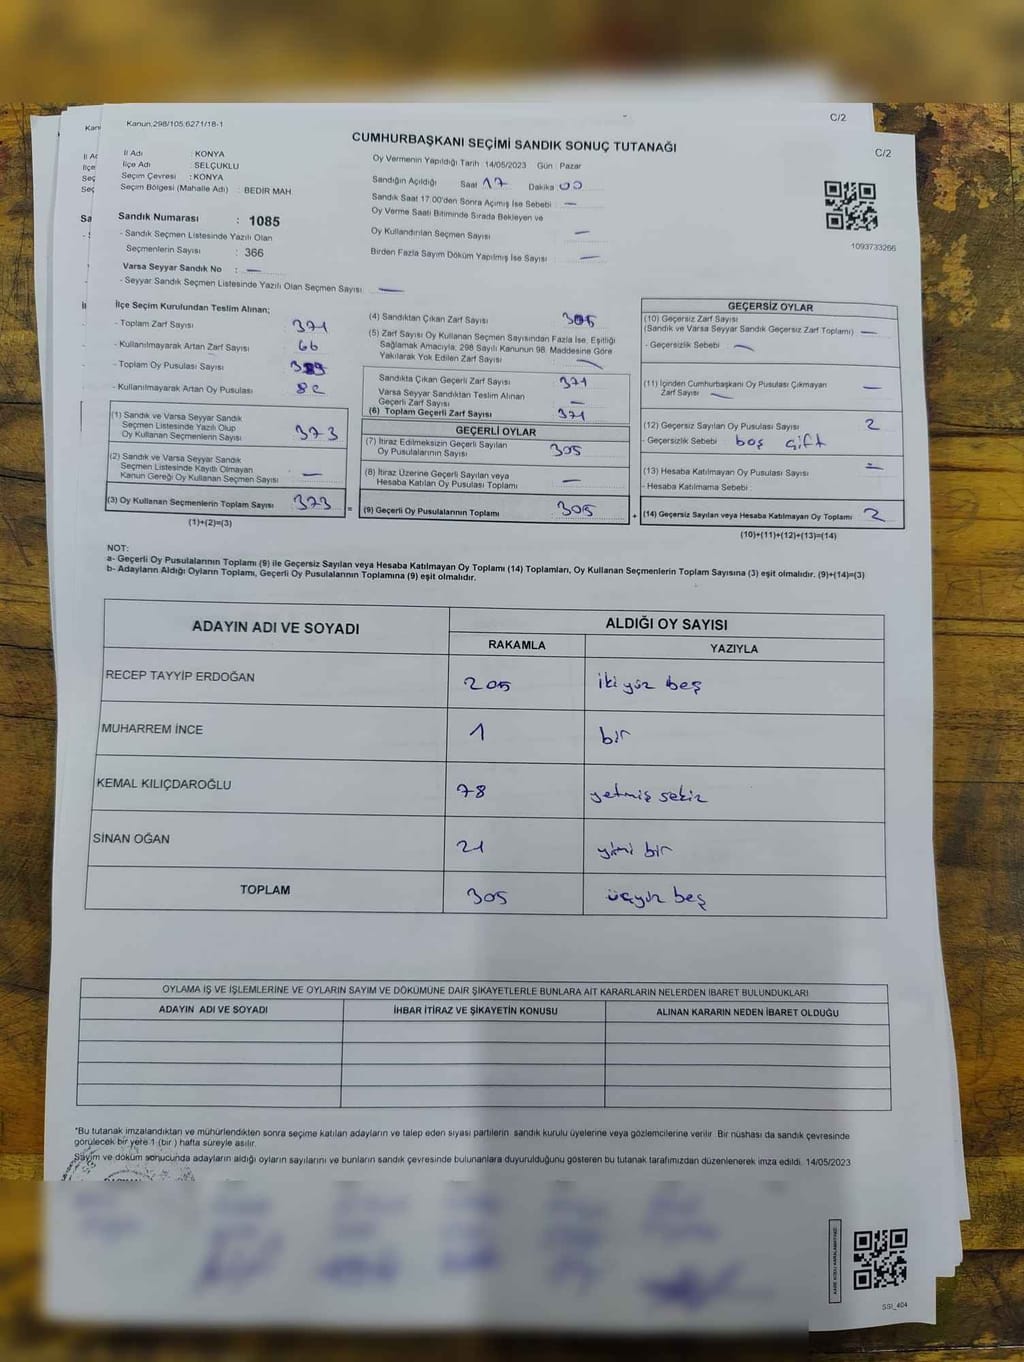 Kanun:298/105;6271/18-1
C/2
C/2
CUMHURBAŞKANI SEÇİMİ SANDIK SONUÇ TUTANAĞI
İl Adı : KONYA
İlçe Adı : SELÇUKLU
Seçim Çevresi : KONYA
Seçim Bölgesi (Mahalle Adı) : BEDIR MAH
Sandık Numarası : 1085
- Sandık Seçmen Listesinde Yazılı Olan
Seçmenlerin Sayısı : 366
Varsa Seyyar Sandık No : —
- Seyyar Sandık Seçmen Listesinde Yazılı Olan Seçmen Sayısı —
Oy Vermenin Yapıldığı Tarih : 14/05/2023 Gün : Pazar
Sandığın Açıldığı Saat 17 Dakika 00
Sandık Saat 17:00'den Sonra Açımış İse Sebebi : —
Oy Verme Saati Bitiminde Sırada Bekleyen ve
Oy Kullandırılan Seçmen Sayısı —
Birden Fazla Sayım Döküm Yapılmış İse Sayısı —
1093733266
İlçe Seçim Kurulundan Teslim Alınan;
- Toplam Zarf Sayısı 371
- Kullanılmayarak Artan Zarf Sayısı 66
- Toplam Oy Pusulası Sayısı
- Kullanılmayarak Artan Oy Pusulası 82
(1) Sandık ve Varsa Seyyar Sandık
Seçmen Listesinde Yazılı Olup
Oy Kullanan Seçmenlerin Sayısı 373
(2) Sandık ve Varsa Seyyar Sandık
Seçmen Listesinde Kayıtlı Olmayan
Kanun Gereği Oy Kullanan Seçmen Sayısı —
(3) Oy Kullanan Seçmenlerin Toplam Sayısı 373
(1)+(2)=(3)
(4) Sandıktan Çıkan Zarf Sayısı 305
(5) Zarf Sayısı Oy Kullanan Seçmen Sayısından Fazla İse, Eşitliği
Sağlamak Amacıyla; 298 Sayılı Kanunun 98. Maddesine Göre
Yakılarak Yok Edilen Zarf Sayısı —
Sandıkta Çıkan Geçerli Zarf Sayısı 371
Varsa Seyyar Sandıktan Teslim Alınan
Geçerli Zarf Sayısı —
(6) Toplam Geçerli Zarf Sayısı 371
GEÇERLİ OYLAR
(7) İtiraz Edilmeksizin Geçerli Sayılan
Oy Pusulalarının Sayısı 305
(8) İtiraz Üzerine Geçerli Sayılan veya
Hesaba Katılan Oy Pusulası Toplamı —
= (9) Geçerli Oy Pusulalarının Toplamı 305
GEÇERSİZ OYLAR
(10) Geçersiz Zarf Sayısı
(Sandık ve Varsa Seyyar Sandık Geçersiz Zarf Toplamı) —
- Geçersizlik Sebebi : —
(11) İçinden Cumhurbaşkanı Oy Pusulası Çıkmayan
Zarf Sayısı — —
(12) Geçersiz Sayılan Oy Pusulası Sayısı 2
- Geçersizlik Sebebi : boş çift
(13) Hesaba Katılmayan Oy Pusulası Sayısı —
- Hesaba Katılmama Sebebi :
+ (14) Geçersiz Sayılan veya Hesaba Katılmayan Oy Toplamı 2
(10)+(11)+(12)+(13)=(14)
NOT:
a- Geçerli Oy Pusulalarının Toplamı (9) ile Geçersiz Sayılan veya Hesaba Katılmayan Oy Toplamı (14) Toplamları, Oy Kullanan Seçmenlerin Toplam Sayısına (3) eşit olmalıdır. (9)+(14)=(3)
b- Adayların Aldığı Oyların Toplamı, Geçerli Oy Pusulalarının Toplamına (9) eşit olmalıdır.
ADAYIN ADI VE SOYADI
ALDIĞI OY SAYISI
RAKAMLA YAZIYLA
RECEP TAYYİP ERDOĞAN 205 iki yüz beş
MUHARREM İNCE 1 bir
KEMAL KILIÇDAROĞLU 78 yetmiş sekiz
SİNAN OĞAN 21 yirmi bir
TOPLAM 305 üçyüz beş
OYLAMA İŞ VE İŞLEMLERİNE VE OYLARIN SAYIM VE DÖKÜMÜNE DAİR ŞİKAYETLERLE BUNLARA AİT KARARLARIN NELERDEN İBARET BULUNDUKLARI
ADAYIN ADI VE SOYADI İHBAR İTİRAZ VE ŞİKAYETİN KONUSU ALINAN KARARIN NEDEN İBARET OLDUĞU
*Bu tutanak imzalandıktan ve mühürlendikten sonra seçime katılan adayların ve talep eden siyasi partilerin sandık kurulu üyelerine veya gözlemcilerine verilir. Bir nüshası da sandık çevresinde
görülecek bir yere 1 (bir ) hafta süreyle asılır.
Sayım ve döküm sonucunda adayların aldığı oyların sayılarını ve bunların sandık çevresinde bulunanlara duyurulduğunu gösteren bu tutanak tarafımızdan düzenlenerek imza edildi. 14/05/2023
KARE KODU KARALAMAYINIZ!
SSI_404